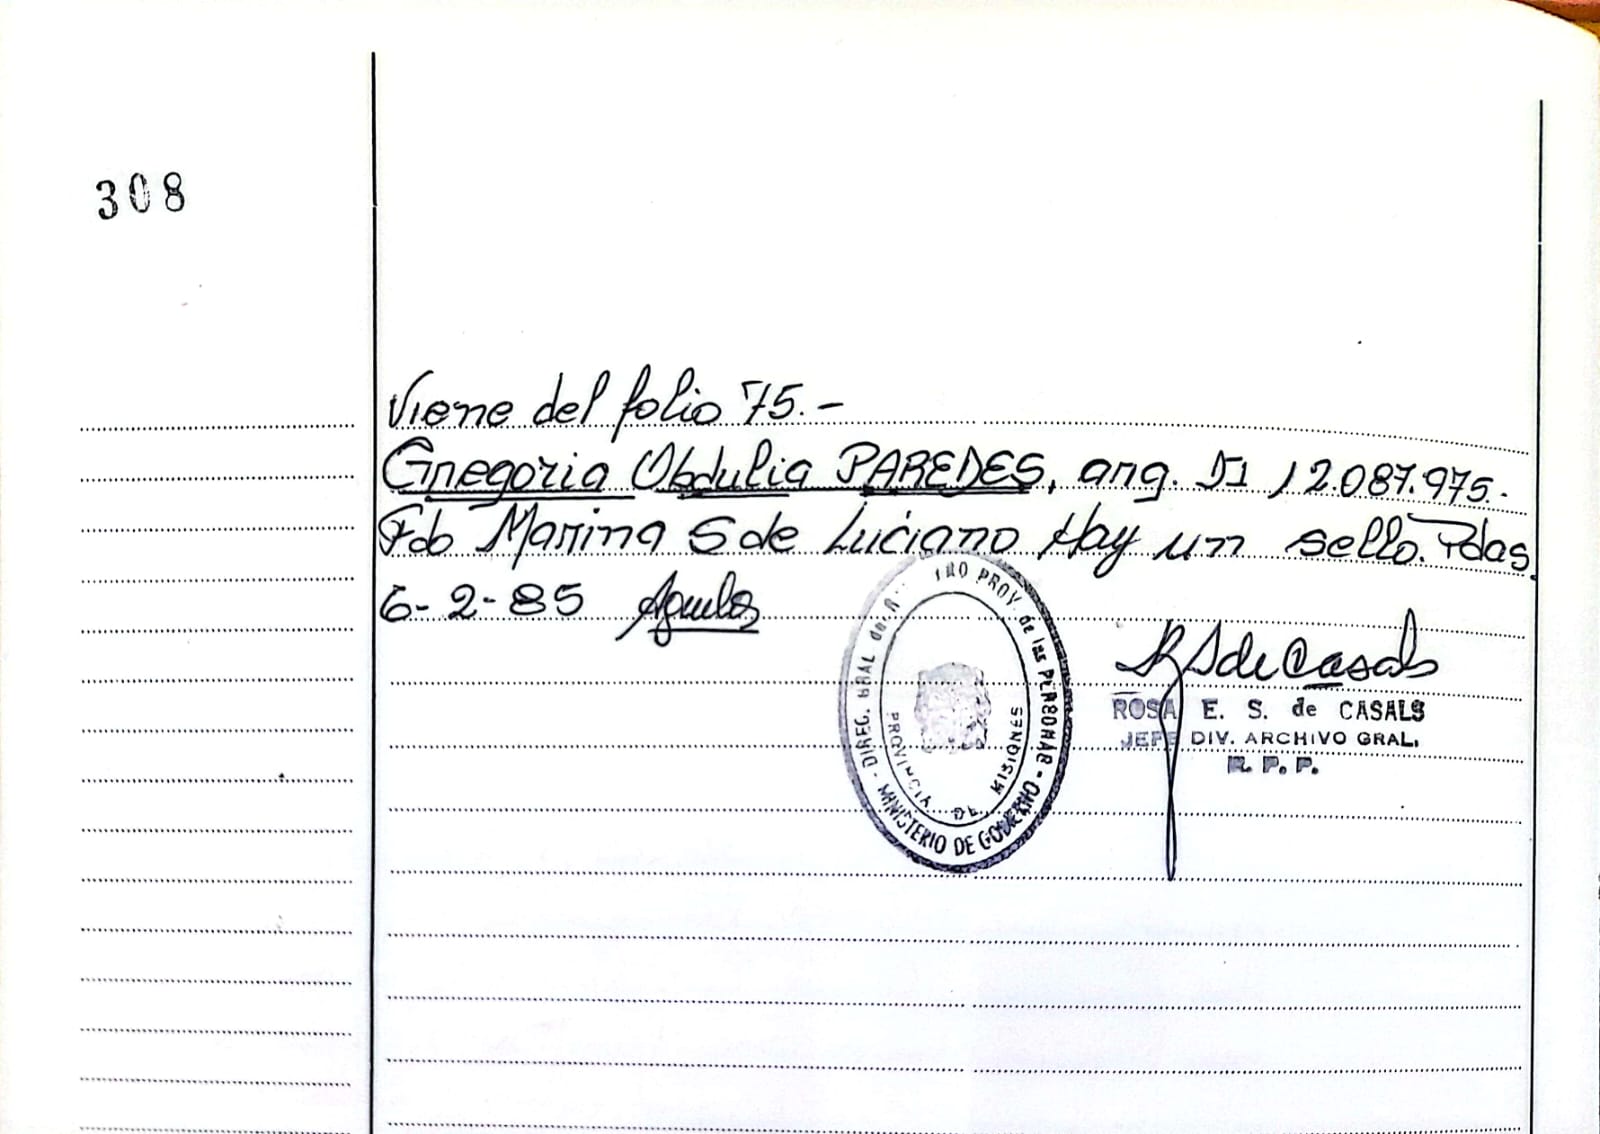 308
Viene del folio 75.-
Gregoria Obdulia PAREDES, arg. DI 12.087.975.-
Fdo Marina S de Luciano Hay un sello. Pdas
6-2-85
DIREC. GRAL del PROV. de las PERSONAS - MINISTERIO DE GOBIERNO -
PROVINCIA DE MISIONES
R S de Casals
ROSA E. S. de CASALS
JEFE DIV. ARCHIVO GRAL.
R. P. P.